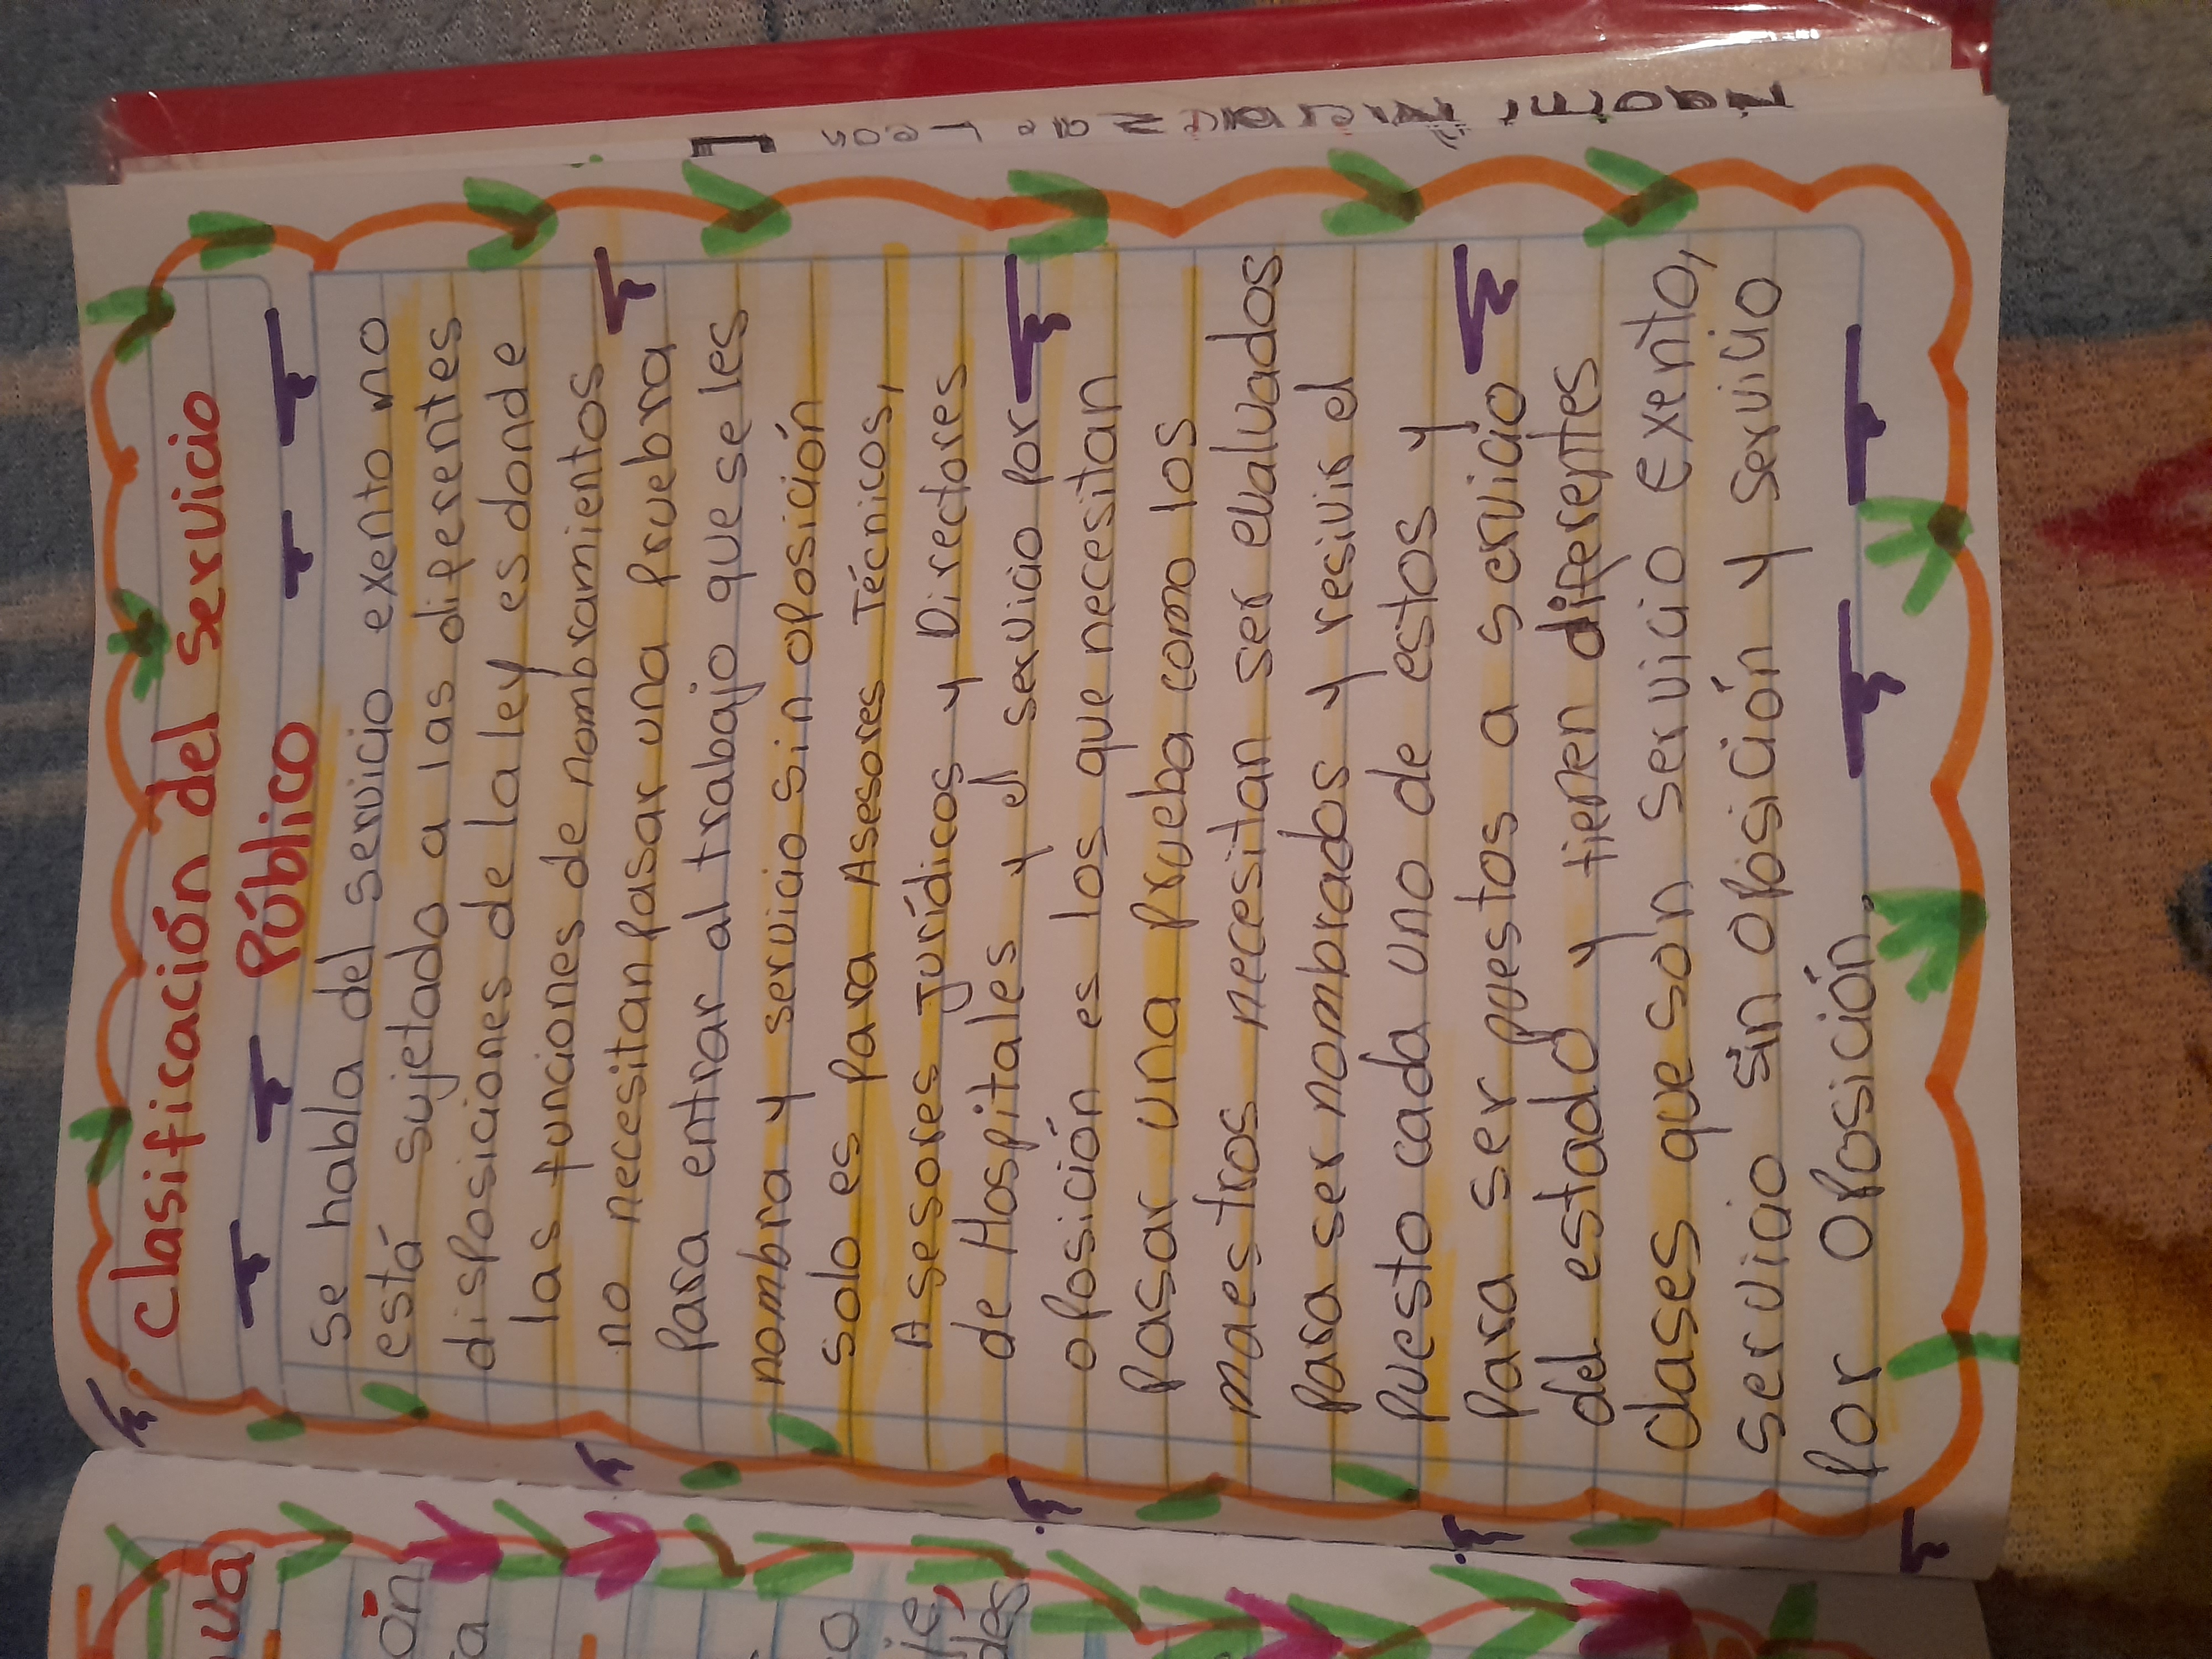 Clasificación del servicio
Público
Se habla del servicio exento no
está sujetado a las diferentes
disposiciones de la ley es donde
las funciones de nombramientos
no necesitan pasar una pruebra
para entrar al trabajo que se les
nombra y servicio sin oposición
solo es para Asesores Técnicos,
Asesores jurídicos y Directores
de Hospitales y el servicio por
oposición es los que necesitan
pasar una prueba como los
maestros necesitan ser evaluados
para ser nombrados y resivir el
puesto cada uno de estos y
para ser puestos a servicio
del estado y tienen diferentes
clases que son servicio exento,
servicio sin oposición y servicio
por oposición.